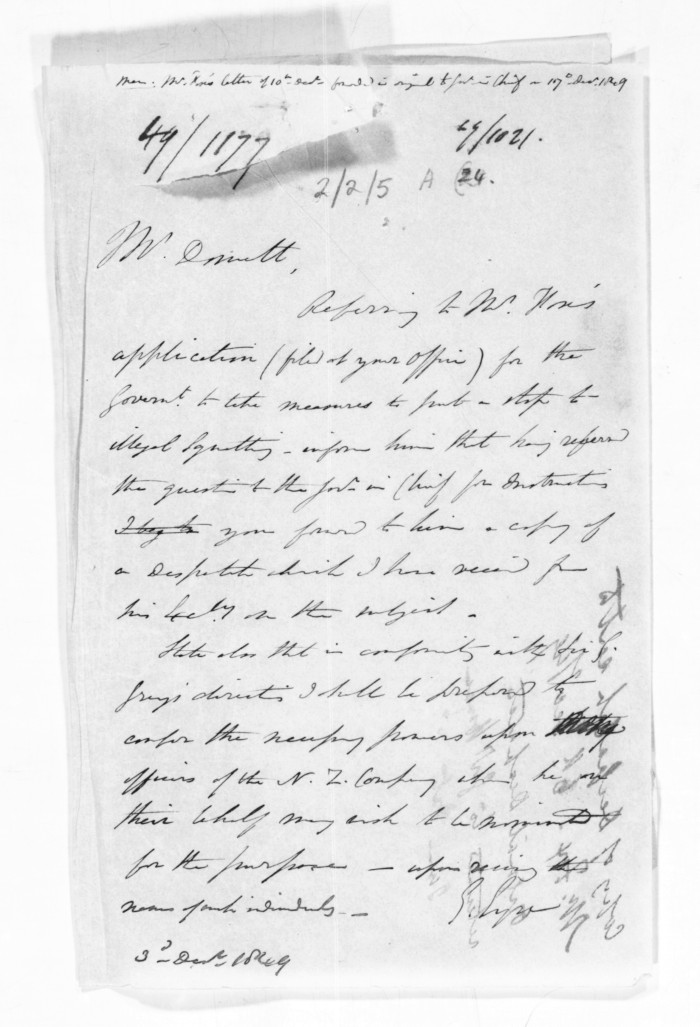 Mem. Mr. Fox's letter of 10th Decr. forwarded in original to Govr. in Chief on 17th Decr. 1849
49/1177
49/1021.
2/2/5 A (24.
Mr. Domett,
Referring to Mr. Fox's
application (filed at your office) for the
Governt. to take measures to put a stop to
illegal squatting - inform him that having referred
the question to the Govr. in Chief for Instructions
I beg to you forward to him a copy of
a Despatch which I have received from
his Excely. on the subject.
State also that in conformity with Sir G.
Grey's directions I shall be prepared to
confer the necessary powers upon
officers of the N. Z. Company whom he on
their behalf may wish to be nominated
for the purpose - upon receiving the
names of such individuals -
E. Eyre
3d Decr. 1849